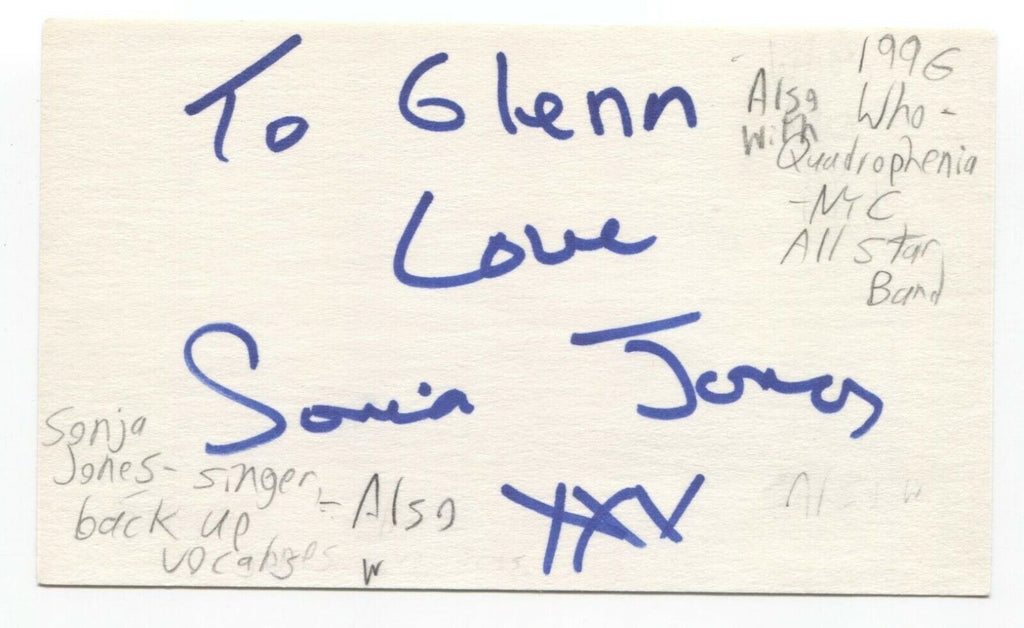 To Glenn
Love
Sonia Jones
XXX
1996
Also Who -
With Quadrophenia
- NYC
All Star
Band
Sonja
Jones - singer,
back up - Also
w